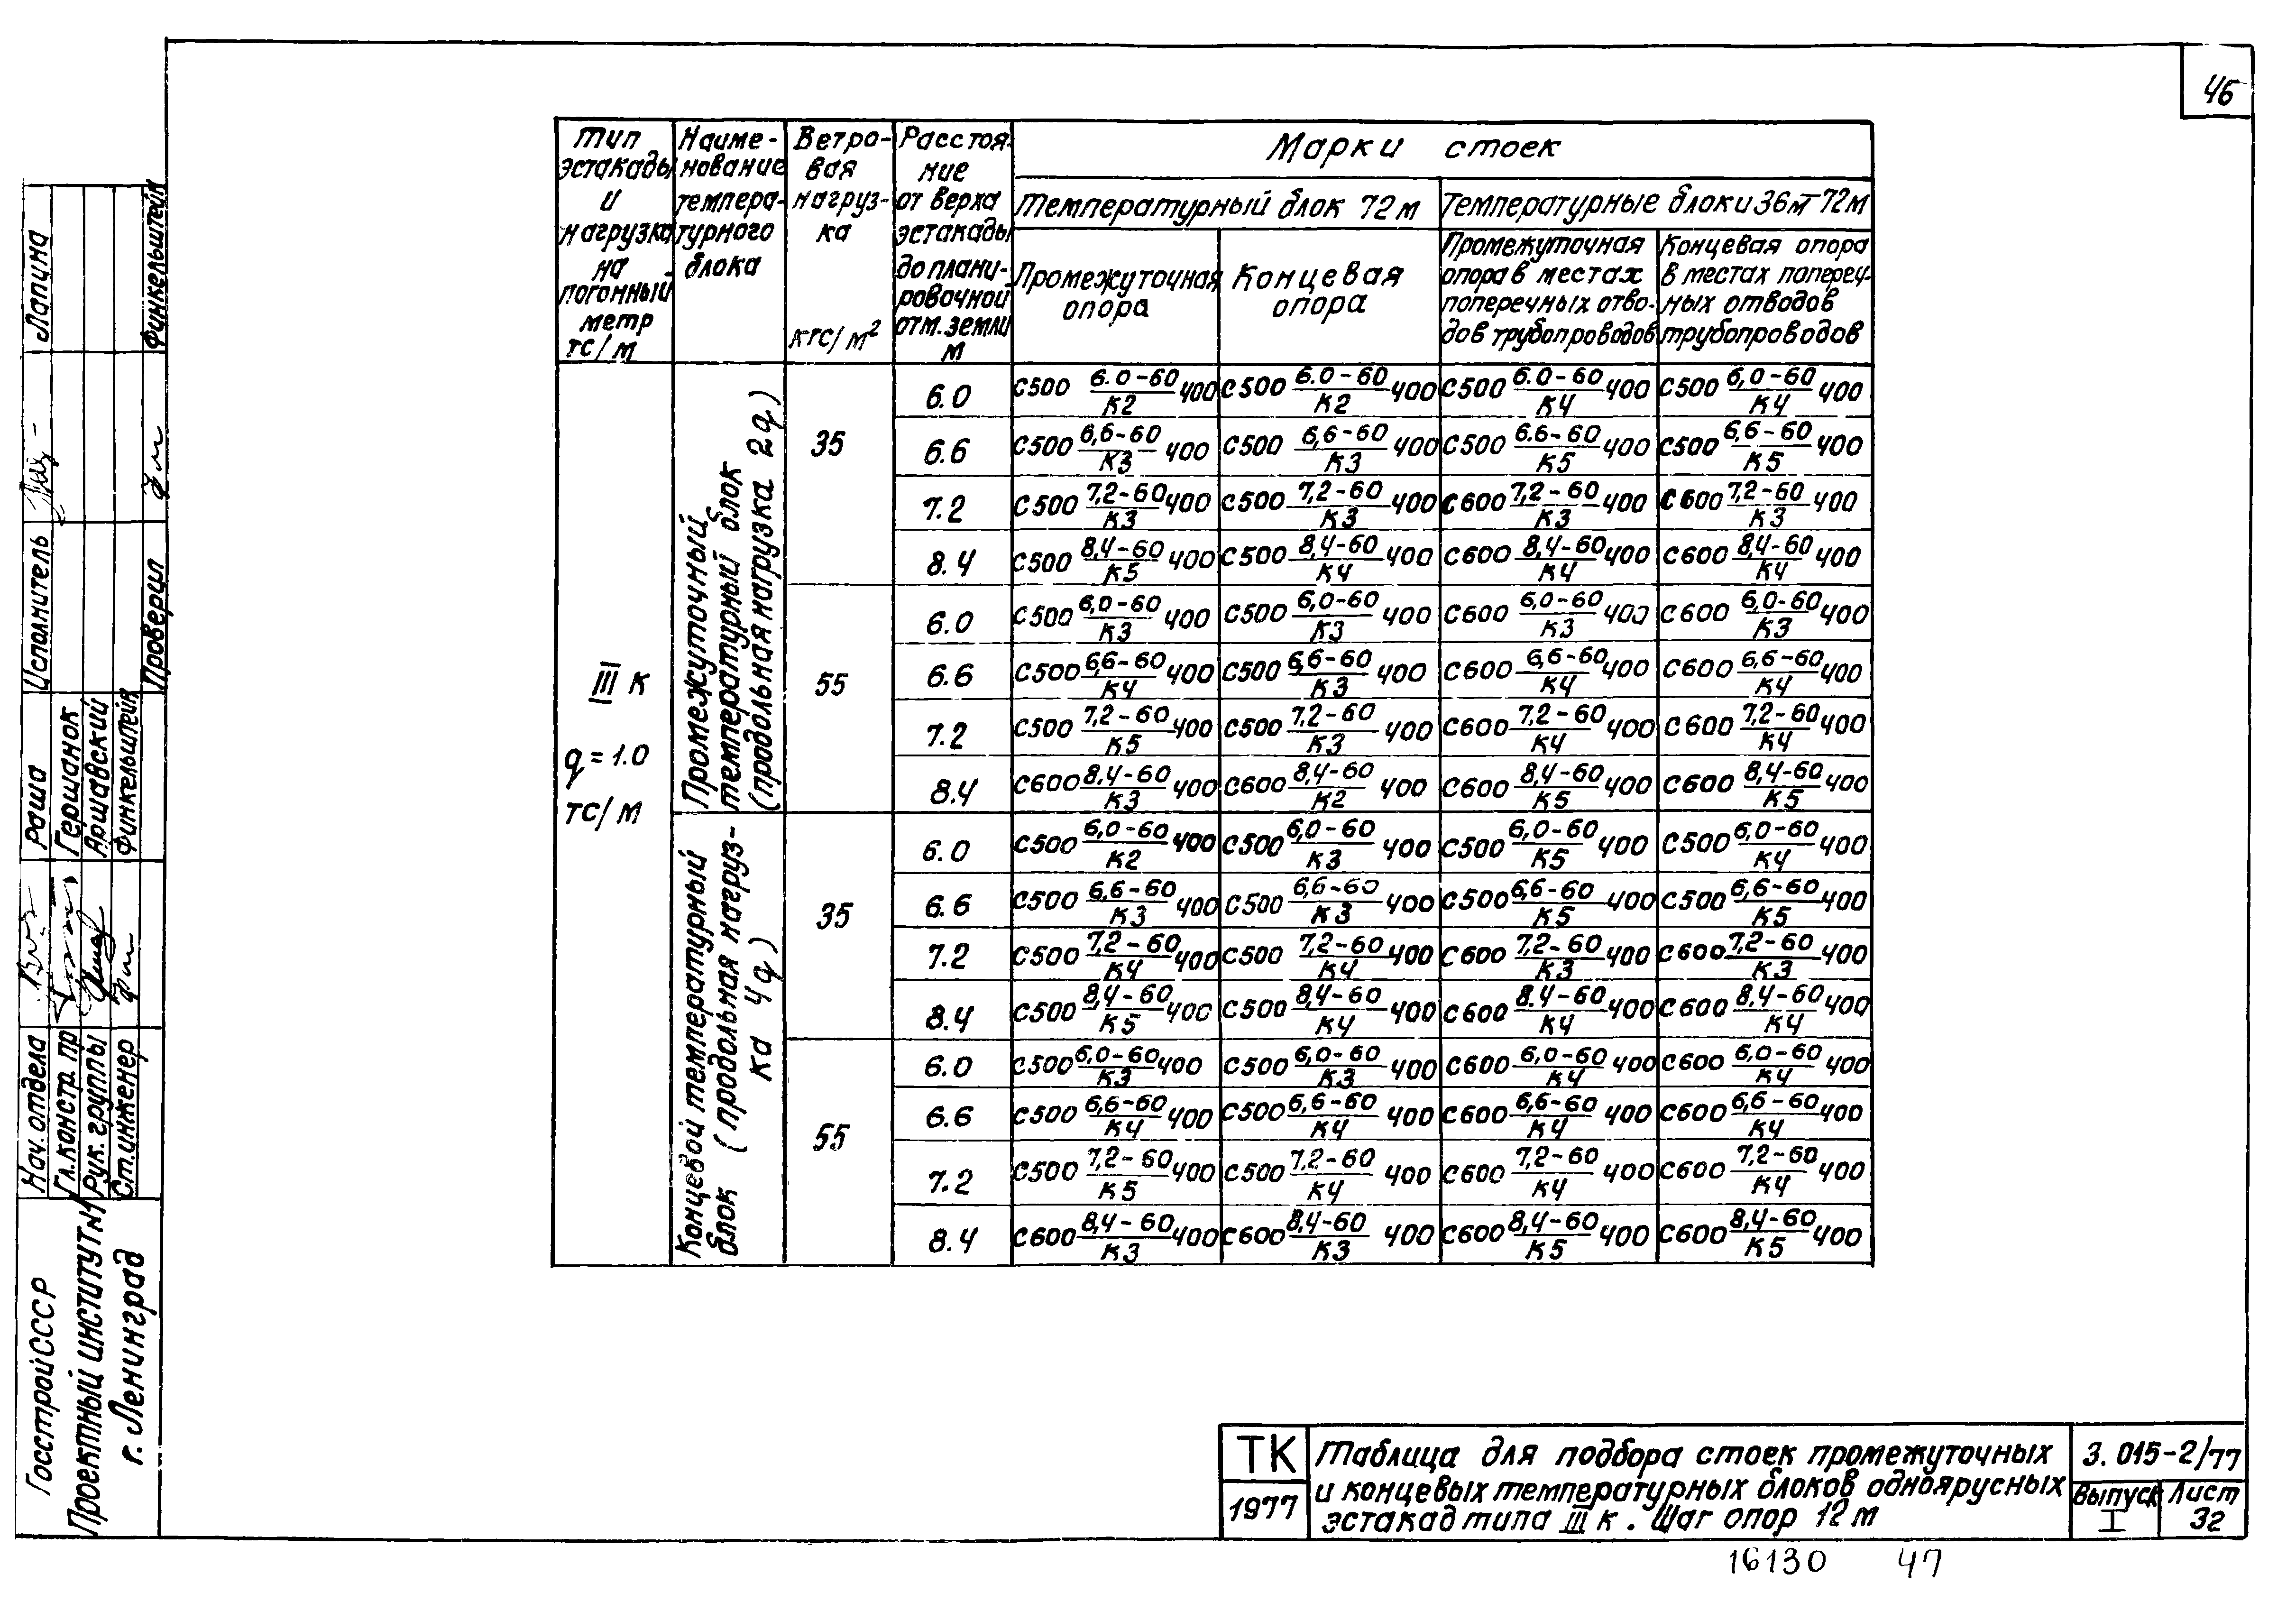 46
Тип эстакады и нагрузка на погонный метр тс/м
Наиме-нование темпера-турного блока
Ветро-вая нагруз-ка кгс/м²
Расстоя-ние от верха эстакады до плани-ровочной отм. земли м
Марки стоек
Температурный блок 72 м
Температурные блоки 36м-72м
Промежуточная опора
Концевая опора
Промежуточная опора в местах поперечных отво-дов трубопроводов
Концевая опора в местах попереч-ных отводов трубопроводов
III К
q = 1.0
тс/м
Промежуточный температурный блок (продольная нагрузка 2q)
35
6.0 С500 6.0-60/К2 400 С500 6.0-60/К2 400 С500 6.0-60/К4 400 С500 6,0-60/К4 400
6.6 С500 6,6-60/К3 400 С500 6,6-60/К3 400 С500 6.6-60/К5 400 С500 6,6-60/К5 400
7.2 С500 7,2-60/К3 400 С500 7,2-60/К3 400 С600 7,2-60/К3 400 С600 7,2-60/К3 400
8.4 С500 8,4-60/К5 400 С500 8,4-60/К4 400 С600 8,4-60/К4 400 С600 8,4-60/К4 400
55
6.0 С500 6,0-60/К3 400 С500 6,0-60/К3 400 С600 6,0-60/К3 400 С600 6,0-60/К3 400
6.6 С500 6,6-60/К4 400 С500 6,6-60/К3 400 С600 6,6-60/К4 400 С600 6,6-60/К4 400
7.2 С500 7,2-60/К5 400 С500 7,2-60/К3 400 С600 7,2-60/К4 400 С600 7,2-60/К4 400
8.4 С600 8.4-60/К3 400 С600 8,4-60/К2 400 С600 8,4-60/К5 400 С600 8,4-60/К5 400
Концевой температурный блок (продольная нагруз-ка 4q)
35
6.0 С500 6,0-60/К2 400 С500 6,0-60/К3 400 С500 6,0-60/К5 400 С500 6,0-60/К4 400
6.6 С500 6,6-60/К3 400 С500 6,6-60/К3 400 С500 6,6-60/К5 400 С500 6,6-60/К5 400
7.2 С500 7,2-60/К4 400 С500 7,2-60/К4 400 С600 7,2-60/К3 400 С600 7,2-60/К3 400
8.4 С500 8,4-60/К5 400 С500 8,4-60/К4 400 С600 8.4-60/К4 400 С600 8,4-60/К4 400
55
6.0 С500 6,0-60/К3 400 С500 6,0-60/К3 400 С600 6,0-60/К4 400 С600 6,0-60/К4 400
6.6 С500 6,6-60/К4 400 С500 6,6-60/К4 400 С600 6,6-60/К4 400 С600 6,6-60/К4 400
7.2 С500 7,2-60/К5 400 С500 7,2-60/К4 400 С600 7,2-60/К4 400 С600 7,2-60/К4 400
8.4 С600 8,4-60/К3 400 С600 8,4-60/К3 400 С600 8,4-60/К5 400 С600 8,4-60/К5 400
Госстрой СССР
Проектный институт №1
г. Ленинград
Нач. отдела Раша Исполнитель Лапина
Гл. констр. пр Гершанок
Рук. группы Аршавский
Ст. инженер Финкельштейн
Проверил Финкельштейн
ТК
1977
Таблица для подбора стоек промежуточных
и концевых температурных блоков одноярусных
эстакад типа III к. Шаг опор 12 м
3.015-2/77
Выпуск I
Лист 32
16130 47